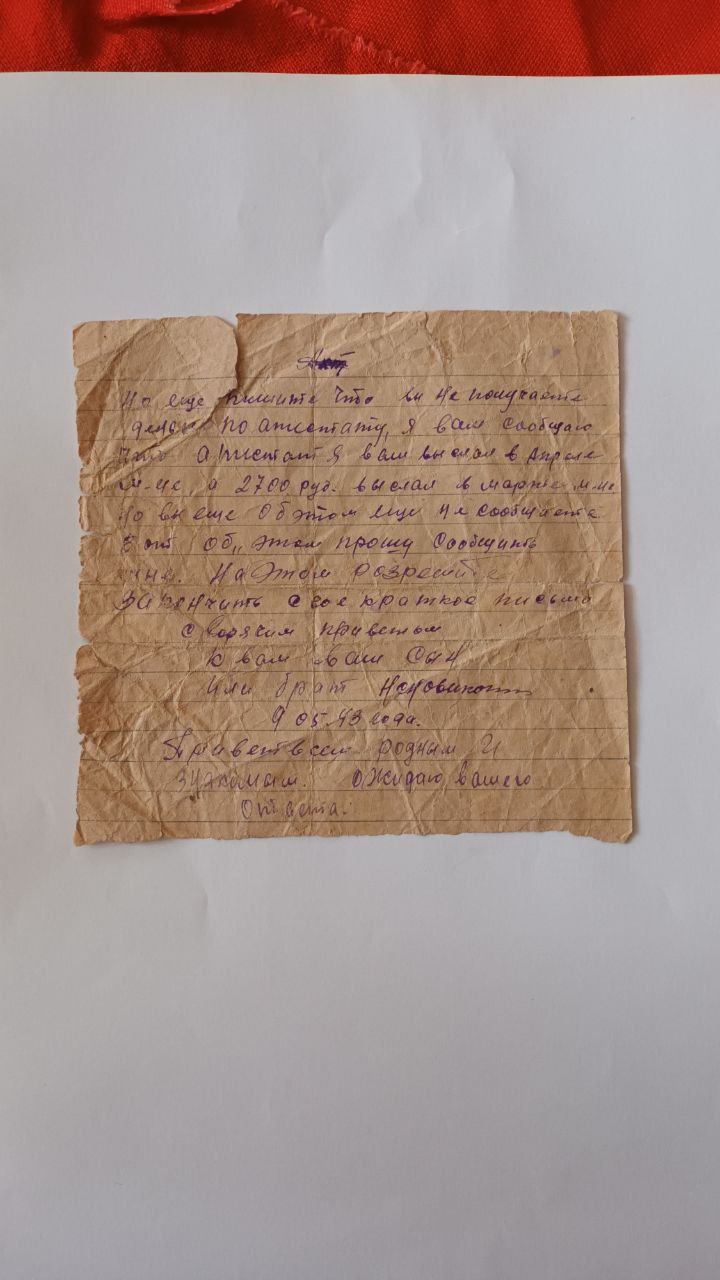 Акт
Но еще пишите что вы не получаете
денег по атестату, я вам сообщаю
что атистат я вам выслал в апреле
м-це а 2700 руб. выслал в марте м-це
Но вы еще об этом еще не сообщаете
Вот об, этом прошу сообщить
мне. На этом розрешите
закончить свое краткое письмо
с горячим приветом
к вам ваш сын
или брат
9 05.43 года.
Привет всем родным и
знакомым. ожидаю вашего
Ответа.